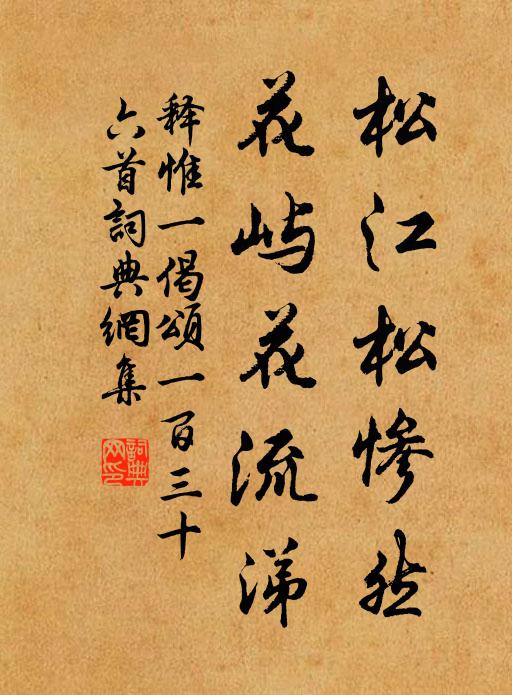 松江松惨然
花屿花流涕
释惟一偈颂一百三十
六首詞典網集
詞典
网印